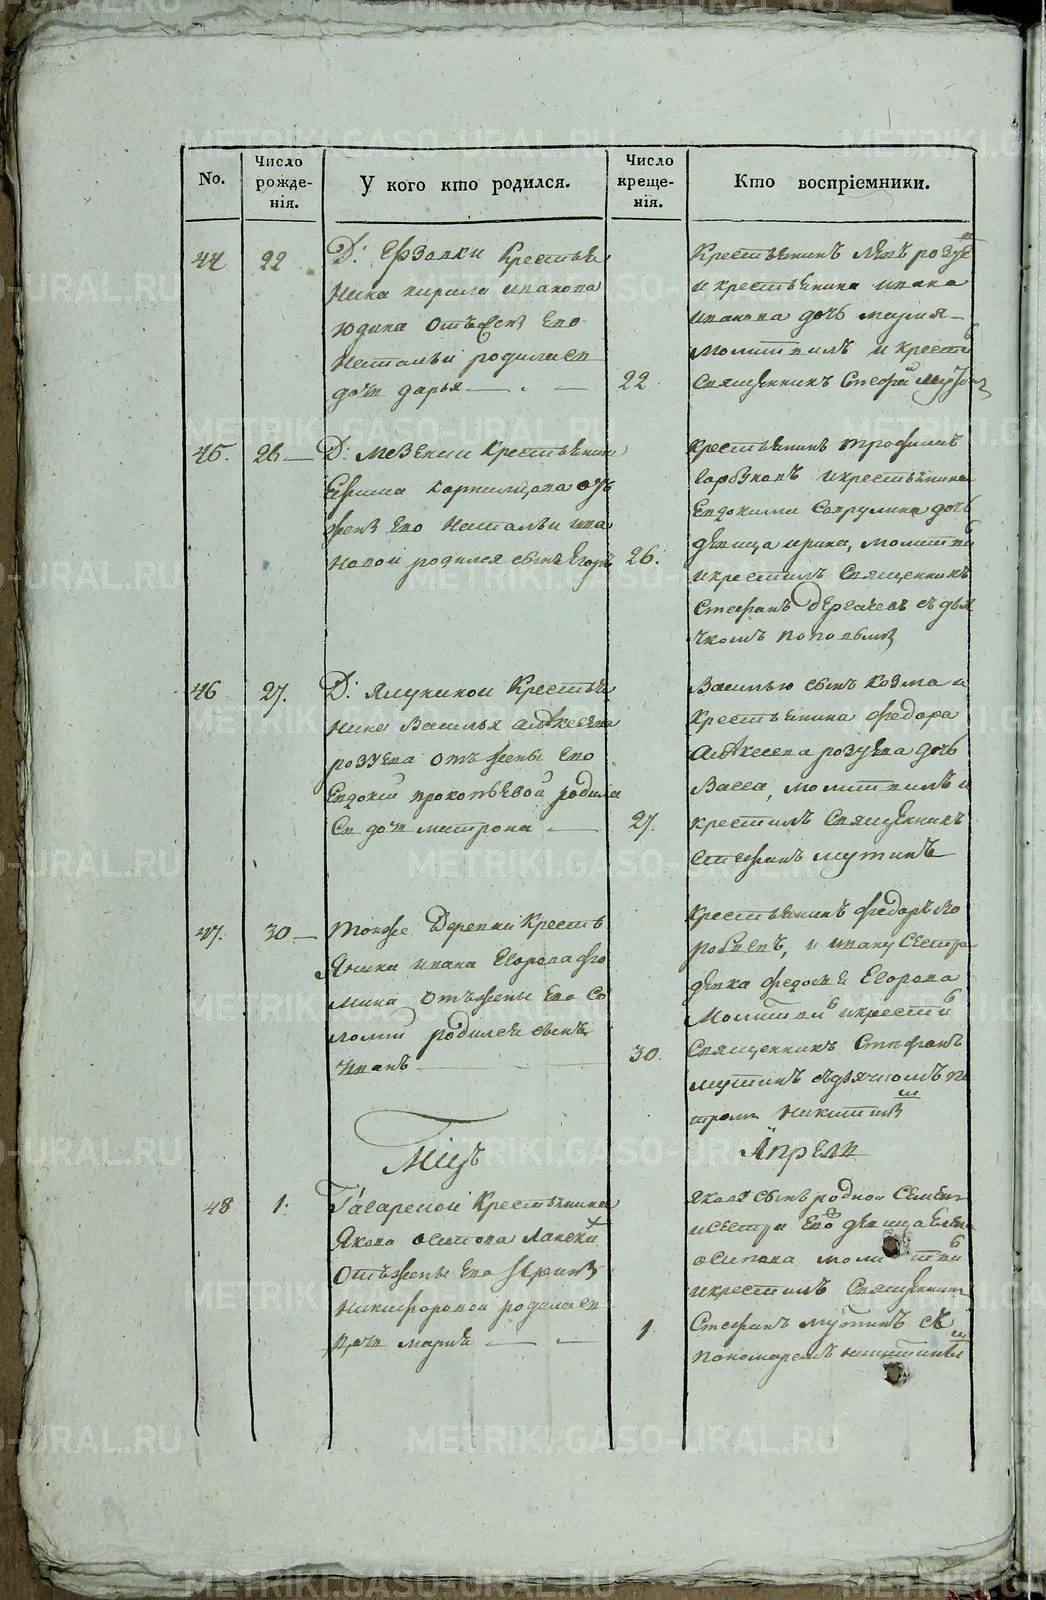 No.
Число рожде-нія.
У кого кто родился.
Число креще-нія.
Кто воспріемники.
44
22
Д: Ерзовки Крестья
ника кирила иванова
юдина отъ женѣ его
Натальи родилася
дочь дарья
22
и крестьянина ивана
иванова дочь марія
молитвилъ и крести
Священникъ Стефа
45.
26
Д: Мезенки крестьянина
Ефима
женѣ его Натальи ива
новой родился сынъ Егоръ
26.
крестьянинъ трофимъ
и крестьянина
Евдокима дочь
девица ирина, молитви
и крестилъ Священникъ
Стефанъ Дергачевъ съ дья
чкомъ поповымъ
46
27.
Д: Ялуниной Крестья
нина Василья алексеева
розуева отъ жены его
Евдокии прокопьевой родила
ся дочь матрона
27.
Василью сынъ козма и
крестьянина федора
алексеева розуева дочь
Васса, молитвилъ и
крестилъ Священникъ
Стефанъ мутинъ
47.
30
тойже Деревни Кресть
янина ивана Егорова фо
мина отъ жены его Со
ломии родился сынъ
иванъ
30.
крестьянинъ федоръ
и ивану сестра
девка федосья Егорова
Молитви и крести
Священникъ Стефанъ
мутинъ съ дьячкомъ пе
тромъ никитин
Мцъ
Апрель
48
1.
Гагарской Крестьянина
Якова осипова
отъ жены его Ирины
никифоровой родилася
дочь марія
1
якова сынъ родной Семенъ
и сестра его девица
осипова моли тви
и крестилъ Священникъ
Стефанъ мутинъ съ
пономаремъ никитинымъ
METRIKI.GASO-URAL.RU